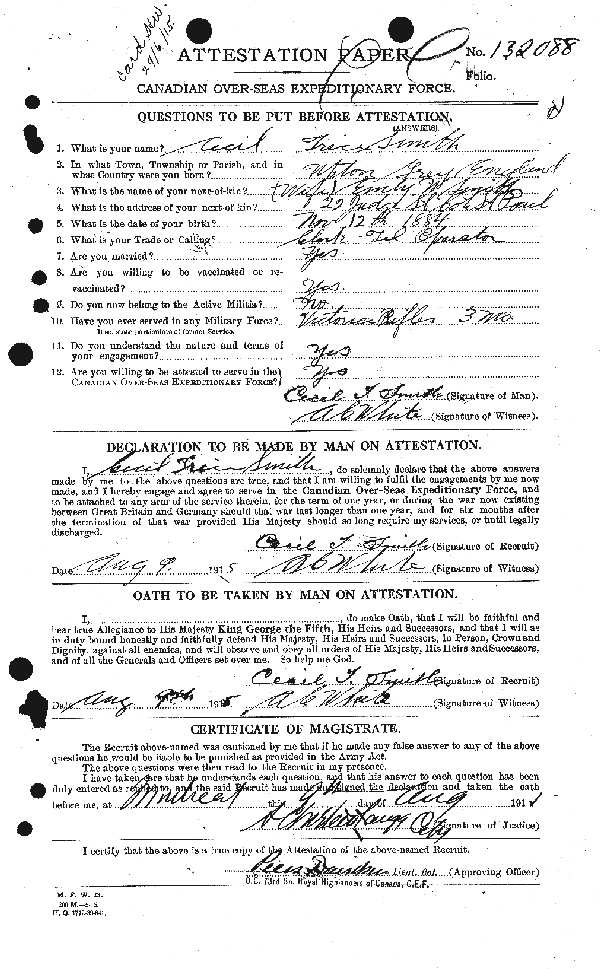 Card New.
29/6/15
ATTESTATION PAPER
No. 132088
Folio.
CANADIAN OVER-SEAS EXPEDITIONARY FORCE.
QUESTIONS TO BE PUT BEFORE ATTESTATION.
(ANSWERS).
1. What is your name? Cecil Smith
2. In what Town, Township or Parish, and in
what Country were you born? Upton Grey England
3. What is the name of your next-of-kin? (Wife) Emily M Smith
4. What is the address of your next-of-kin? 22 St
5. What is the date of your birth? Nov 12th 1884
6. What is your Trade or Calling? Clerk - Tel Operator
7. Are you married? Yes
8. Are you willing to be vaccinated or re-
vaccinated? Yes
9. Do you now belong to the Active Militia? No
10. Have you ever served in any Military Force? Victoria Rifles 3 mo
If so, state particulars of former Service.
11. Do you understand the nature and terms of
your engagement? Yes
12. Are you willing to be attested to serve in the Yes
CANADIAN OVER-SEAS EXPEDITIONARY FORCE?
Cecil T. Smith (Signature of Man).
A C White (Signature of Witness).
DECLARATION TO BE MADE BY MAN ON ATTESTATION.
I, Cecil Smith, do solemnly declare that the above answers
made by me to the above questions are true, and that I am willing to fulfil the engagements by me now
made, and I hereby engage and agree to serve in the Canadian Over-Seas Expeditionary Force, and
to be attached to any arm of the service therein, for the term of one year, or during the war now existing
between Great Britain and Germany should that war last longer than one year, and for six months after
the termination of that war provided His Majesty should so long require my services, or until legally
discharged.
Cecil T. Smith (Signature of Recruit)
Date Aug 9 1915 A C White (Signature of Witness)
OATH TO BE TAKEN BY MAN ON ATTESTATION.
I, do make Oath, that I will be faithful and
bear true Allegiance to His Majesty King George the Fifth, His Heirs and Successors, and that I will as
in duty bound honestly and faithfully defend His Majesty, His Heirs and Successors, in Person, Crown and
Dignity, against all enemies, and will observe and obey all orders of His Majesty, His Heirs and Successors,
and of all the Generals and Officers set over me. So help me God.
Cecil T. Smith (Signature of Recruit)
Date Aug 9th 1915 A C White (Signature of Witness)
CERTIFICATE OF MAGISTRATE.
The Recruit above-named was cautioned by me that if he made any false answer to any of the above
questions he would be liable to be punished as provided in the Army Act.
The above questions were then read to the Recruit in my presence.
I have taken care that he understands each question, and that his answer to each question has been
duly entered as replied to, and the said Recruit has made and signed the declaration and taken the oath
before me, at Montreal this 9th day of Aug 191
(Signature of Justice)
I certify that the above is a true copy of the Attestation of the above-named Recruit.
Lieut. Col. (Approving Officer)
O.C. 73rd Bn. Royal Highlanders of Canada, C.E.F.
M. F. W. 23.
200 M.
H. Q.